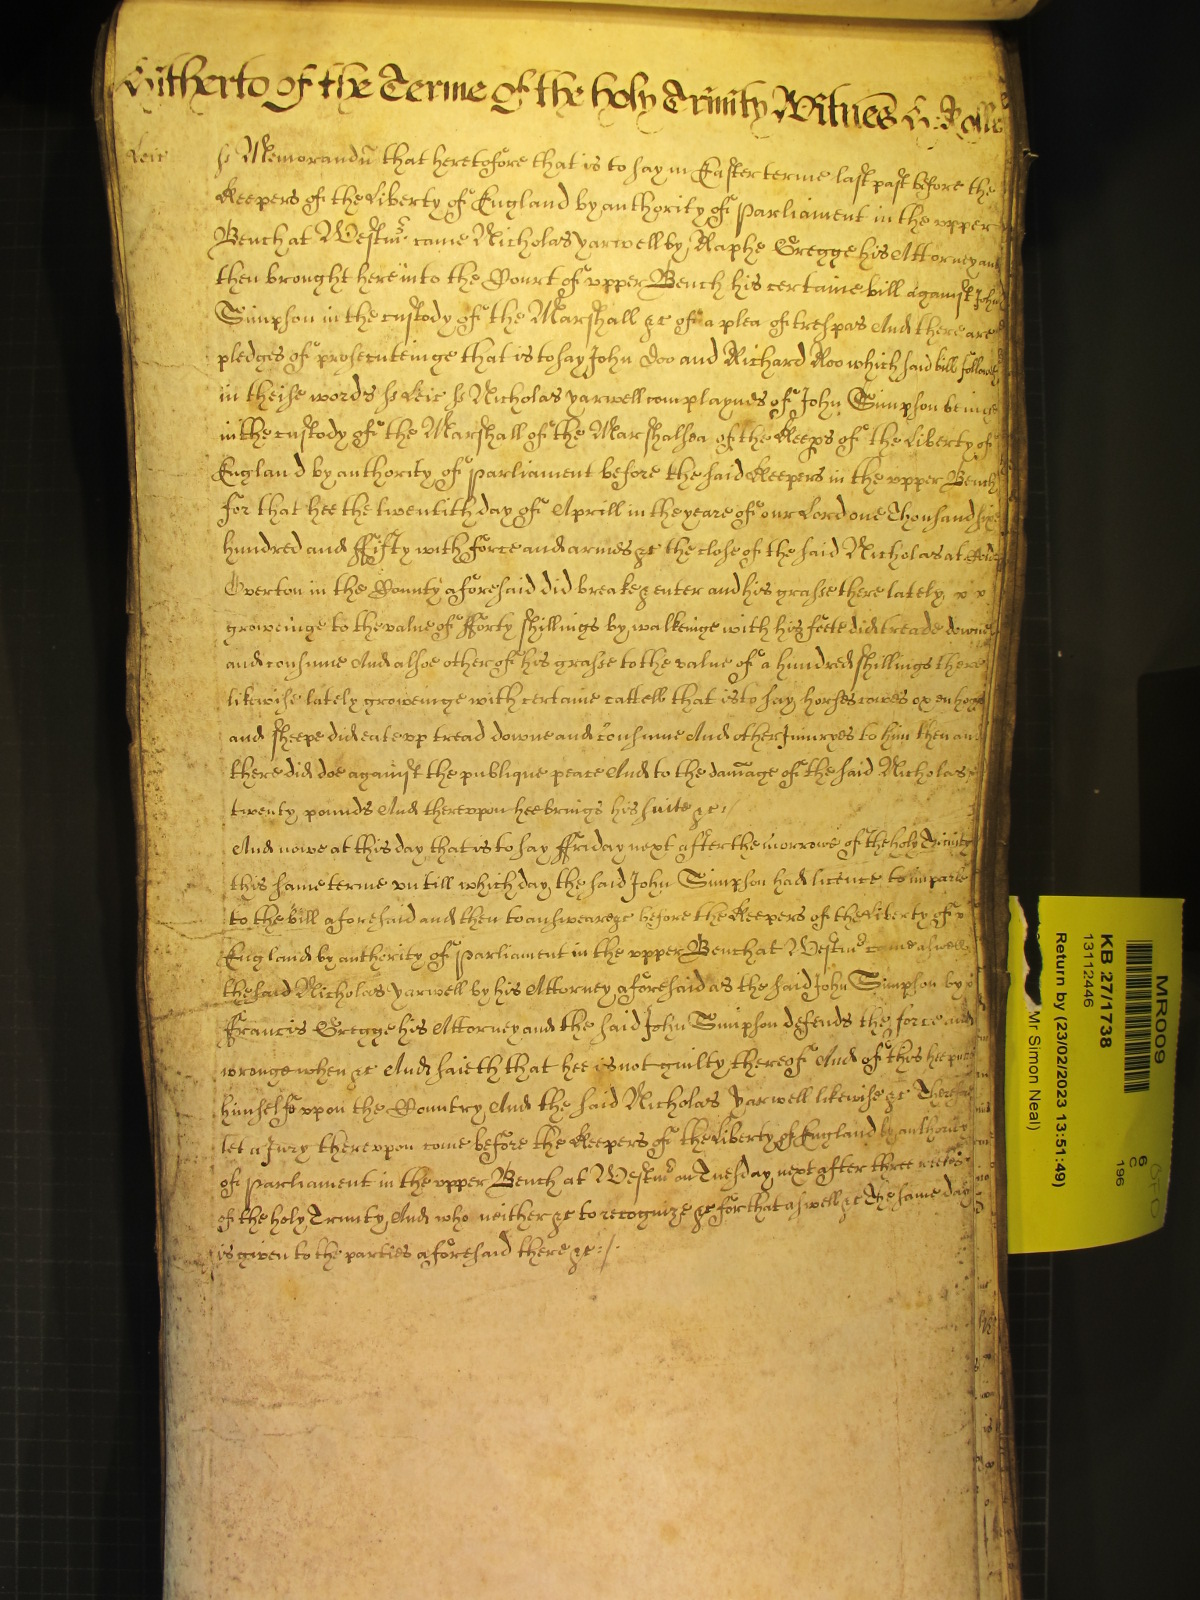 Hitherto of the Terme of the holy Trinity Witnes H: Rolle
Leic
ss Memorandu that heretofore that is to say in Easter terme last past before the
Keepers of the Liberty of England by authority of Parliament in the upper
Bench at Westmr came Nicholas Yarwell by Raphe Gregge his Attorney and
then brought here into the Court of upper Bench his certaine bill against John
Simpson in the custody of the Marshall &c of a plea of trespas And there are
pledges of prosecuteinge that is to say John Doo and Richard Roo which said bill followes
in theise words ss Leic ss Nicholas Yarwell complaynes of John Simpson beinge
in the custody of the Marshall of the Marshalsea of the Keeps of the Liberty of
England by authority of Parliament before the said Keepers in the upper Bench
for that hee the twentith day of Aprill in the yeare of our Lord one Thousand sixe
hundred and ffifty with force and armes &c the close of the said Nicholas at
Overton in the County aforesaid did breake & enter and his grasse there lately
groweinge to the value of fforty shillings by walkeinge with his feete did treade downe
and consume And alsoe other of his grasse to the value of a hundred shillings there
likewise lately groweinge with certaine cattell that is to say horses cowes oxen hogs
and sheepe did eate upp tread downe and consume And other Iniuryes to him then and
there did doe against the publique peace And to the damage of the said Nicholas
twenty pounds And thereupon hee brings his suite &c
And nowe at this day that is to say ffriday next after the morrowe of the holy Trinity
this same terme untill which day the said John Simpson had licence to imparle
to the bill aforesaid and then to answeare &c before the Keepers of the Liberty of
England by authority of Parliament in the upper Bench at Westmr came aswell
the said Nicholas Yarwell by his Attorney aforesaid as the said John Simpson by
ffrancis Gregge his Attorney and the said John Simpson defends the force and
wronge when &c And saieth that hee is not guilty thereof And of this hee puts
himselfe uppon the Country And the said Nicholas Yarwell likewise &c Therefore
let a Jury thereuppon come before the Keepers of the Liberty of England by authority
of Parliament in the upper Bench at Westmr on Tuesday next after three weekes
of the holy Trinity And who neither &c to recognize &c for that aswell &c The same day
is given to the parties aforesaid there &c
MR009
6
C
196
KB 27/1738
13112446
Return by (23/02/2023 13:51:49)
Mr Simon Neal)